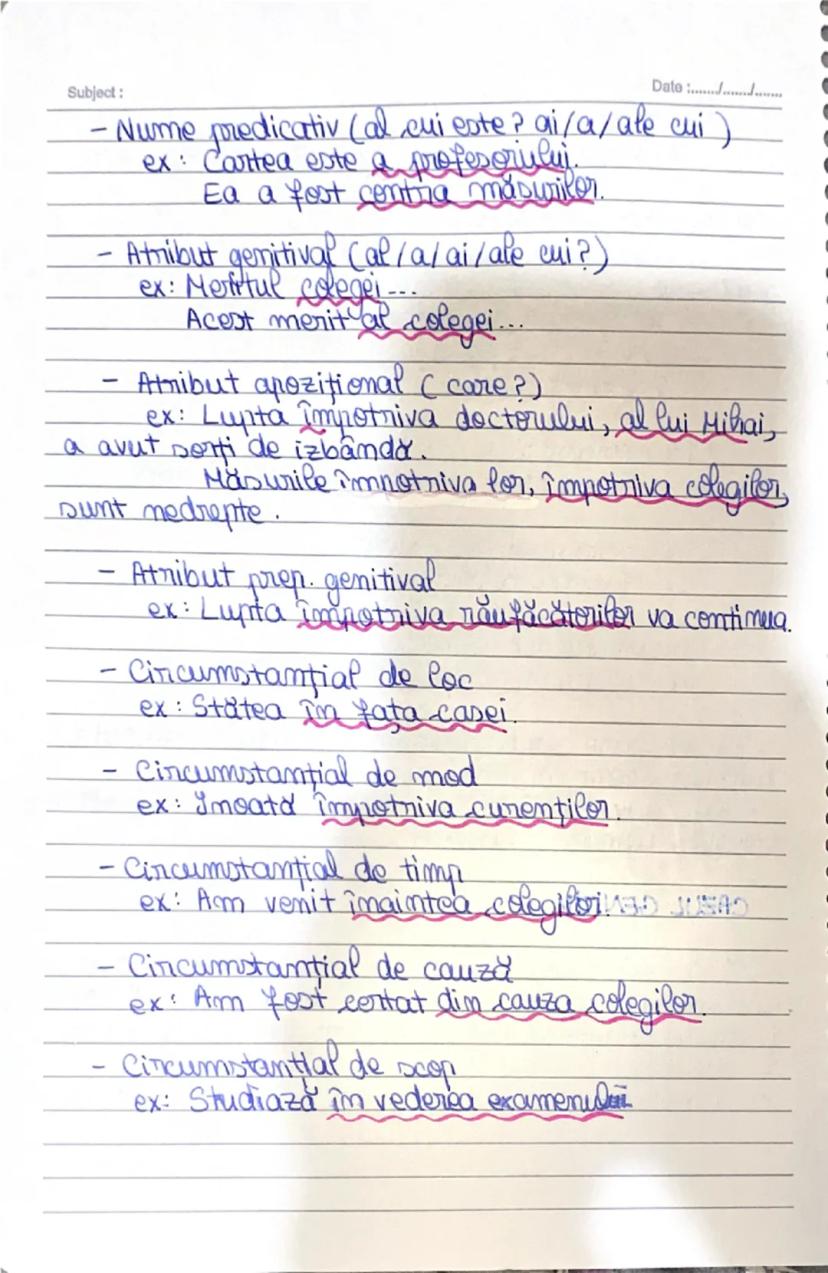 Subject :
Date :......./......./.......
- Nume predicativ (al cui este? ai/a/ale cui )
ex: Cartea este a profesorului.
Ea a fost contra măsurilor.
- Atribut genitival (al/a/ai/ale cui?)
ex: Meritul colegei...
Acest merit al colegei...
- Atribut apozițional ( care?)
ex: Lupta împotriva doctorului, al lui Mihai,
a avut sorți de izbândă.
Măsurile împotriva lor, împotriva colegilor,
sunt nedrepte.
- Atribut prep. genitival
ex: Lupta împotriva răufăcătorilor va continua.
- Circumstanțial de loc
ex: Stătea în fața casei.
- Circumstanțial de mod
ex: Înoată împotriva curenților.
- Circumstanțial de timp
ex: Am venit înaintea colegilor.
- Circumstanțial de cauză
ex: Am fost certat din cauza colegilor.
- Circumstanțial de scop
ex: Studiază în vederea examenului